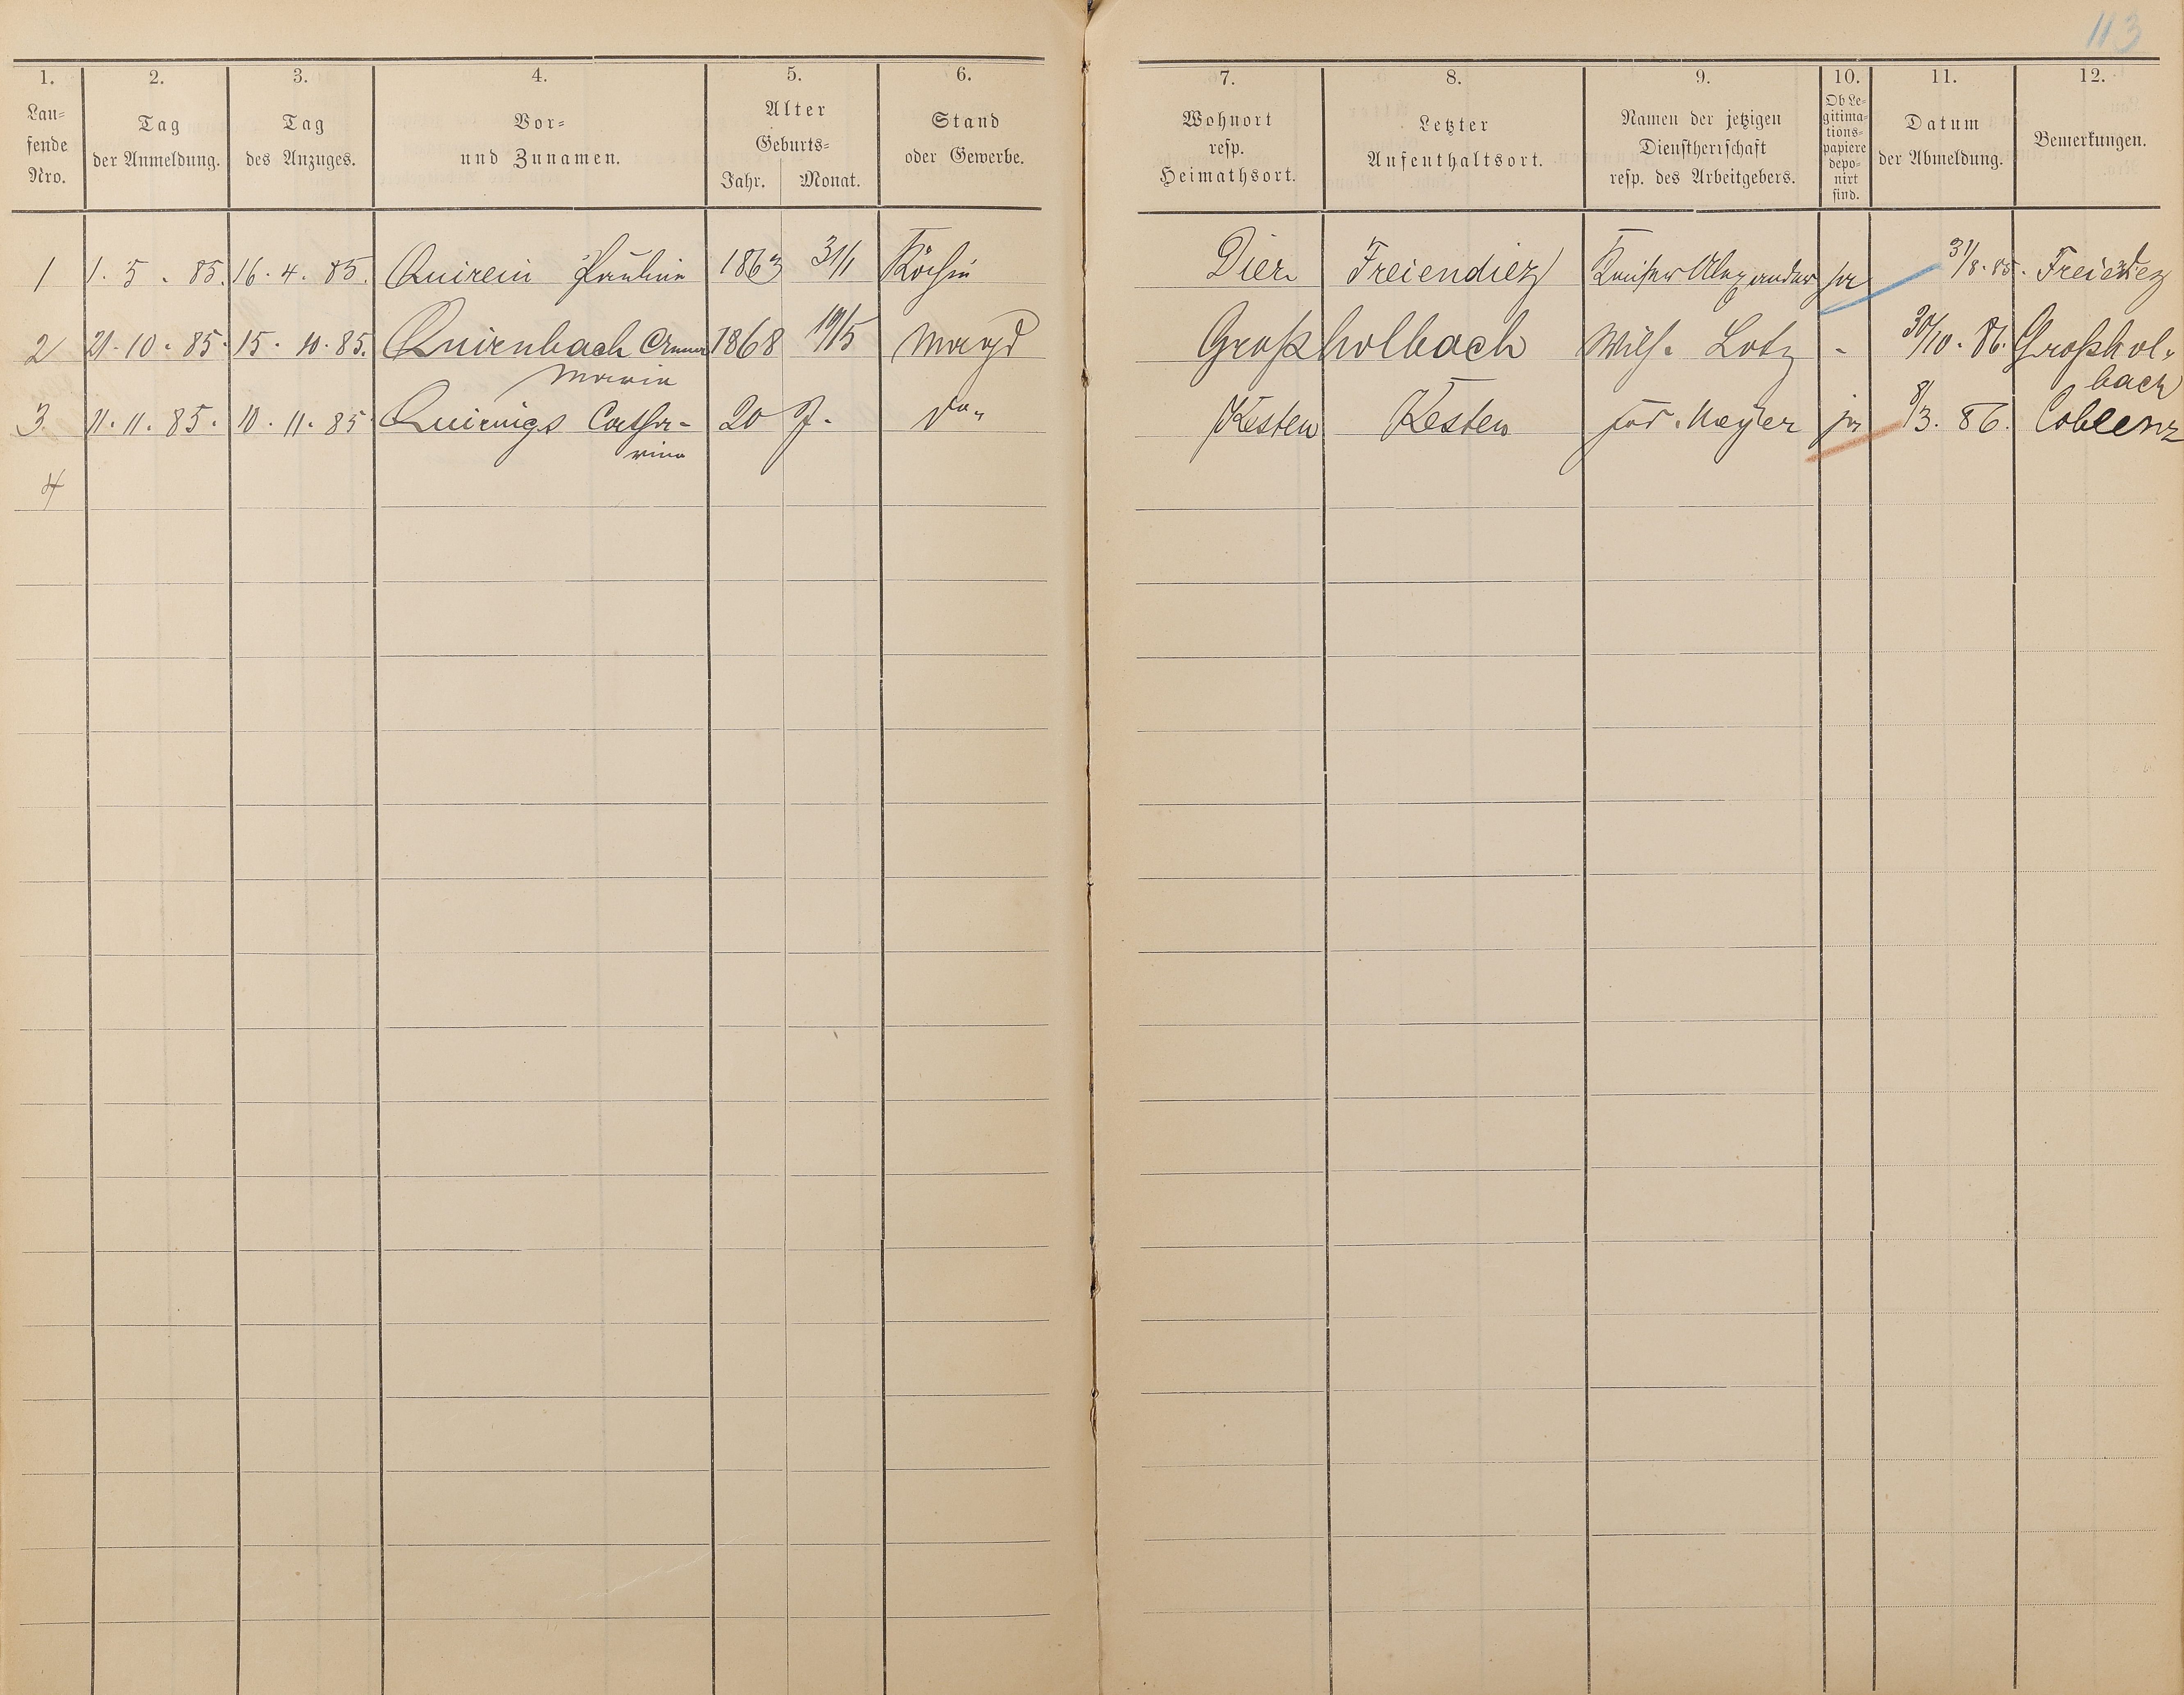 113
1. 2. 3. 4. 5. 6. 7. 8. 9. 10. 11. 12.
Lau-
fende
Nro.
Tag
der Anmeldung.
Tag
des Anzuges.
Vor-
und Zunamen.
Alter
Geburts-
Jahr. Monat.
Stand
oder Gewerbe.
Wohnort
resp.
Heimathsort.
Letzter
Aufenthaltsort.
Namen der jetzigen
Dienstherrschaft
resp. des Arbeitgebers.
Ob Le-
gitima-
tions-
papiere
depo-
nirt
sind.
Datum
der Abmeldung.
Bemerkungen.
1 1. 5. 85. 16. 4. 85. Quirein Pauline 1863 31/1 Köchin Diez Freiendiez Alexander ja 31/8. 85. Freiendiez
2 21. 10. 85. 15. 10. 85. Quirnbach Anna 1868 19/5 Magd Großholbach Wilh. Lotz - 30/10. 86. Großhol-
Maria bach
3 11. 11. 85. 10. 11. 85. Quirings Catha- 20 J. do. Kesten Kesten Meyer ja 8/3. 86. Coblenz
rina
4